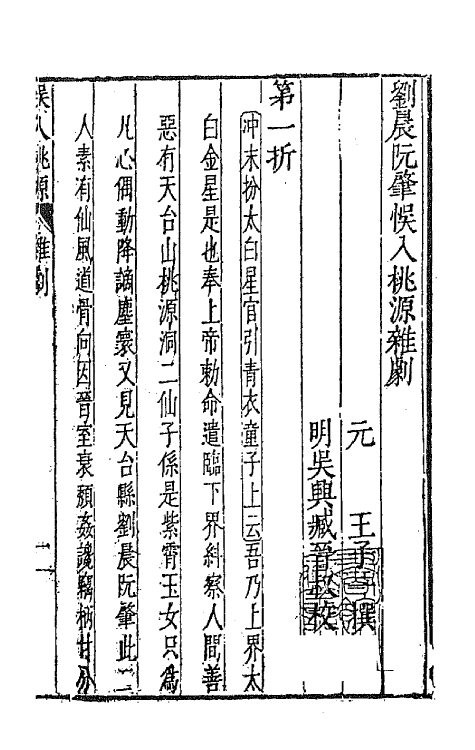 劉晨阮肇悞入桃源雜劇
元 王子一撰
明吳興臧晉叔校
第一折
冲末扮太白星官引青衣童子上云吾乃上界太
白金星是也奉上帝勑命遣臨下界糾察人間善
惡有天台山桃源洞二仙子係是紫霄玉女只爲
凡心偶動降謫塵寰又見天台縣劉晨阮肇此二
人素有仙風道骨向因晉室衰頹姦讒竊柄甘分
悞入桃源 雜劇 一